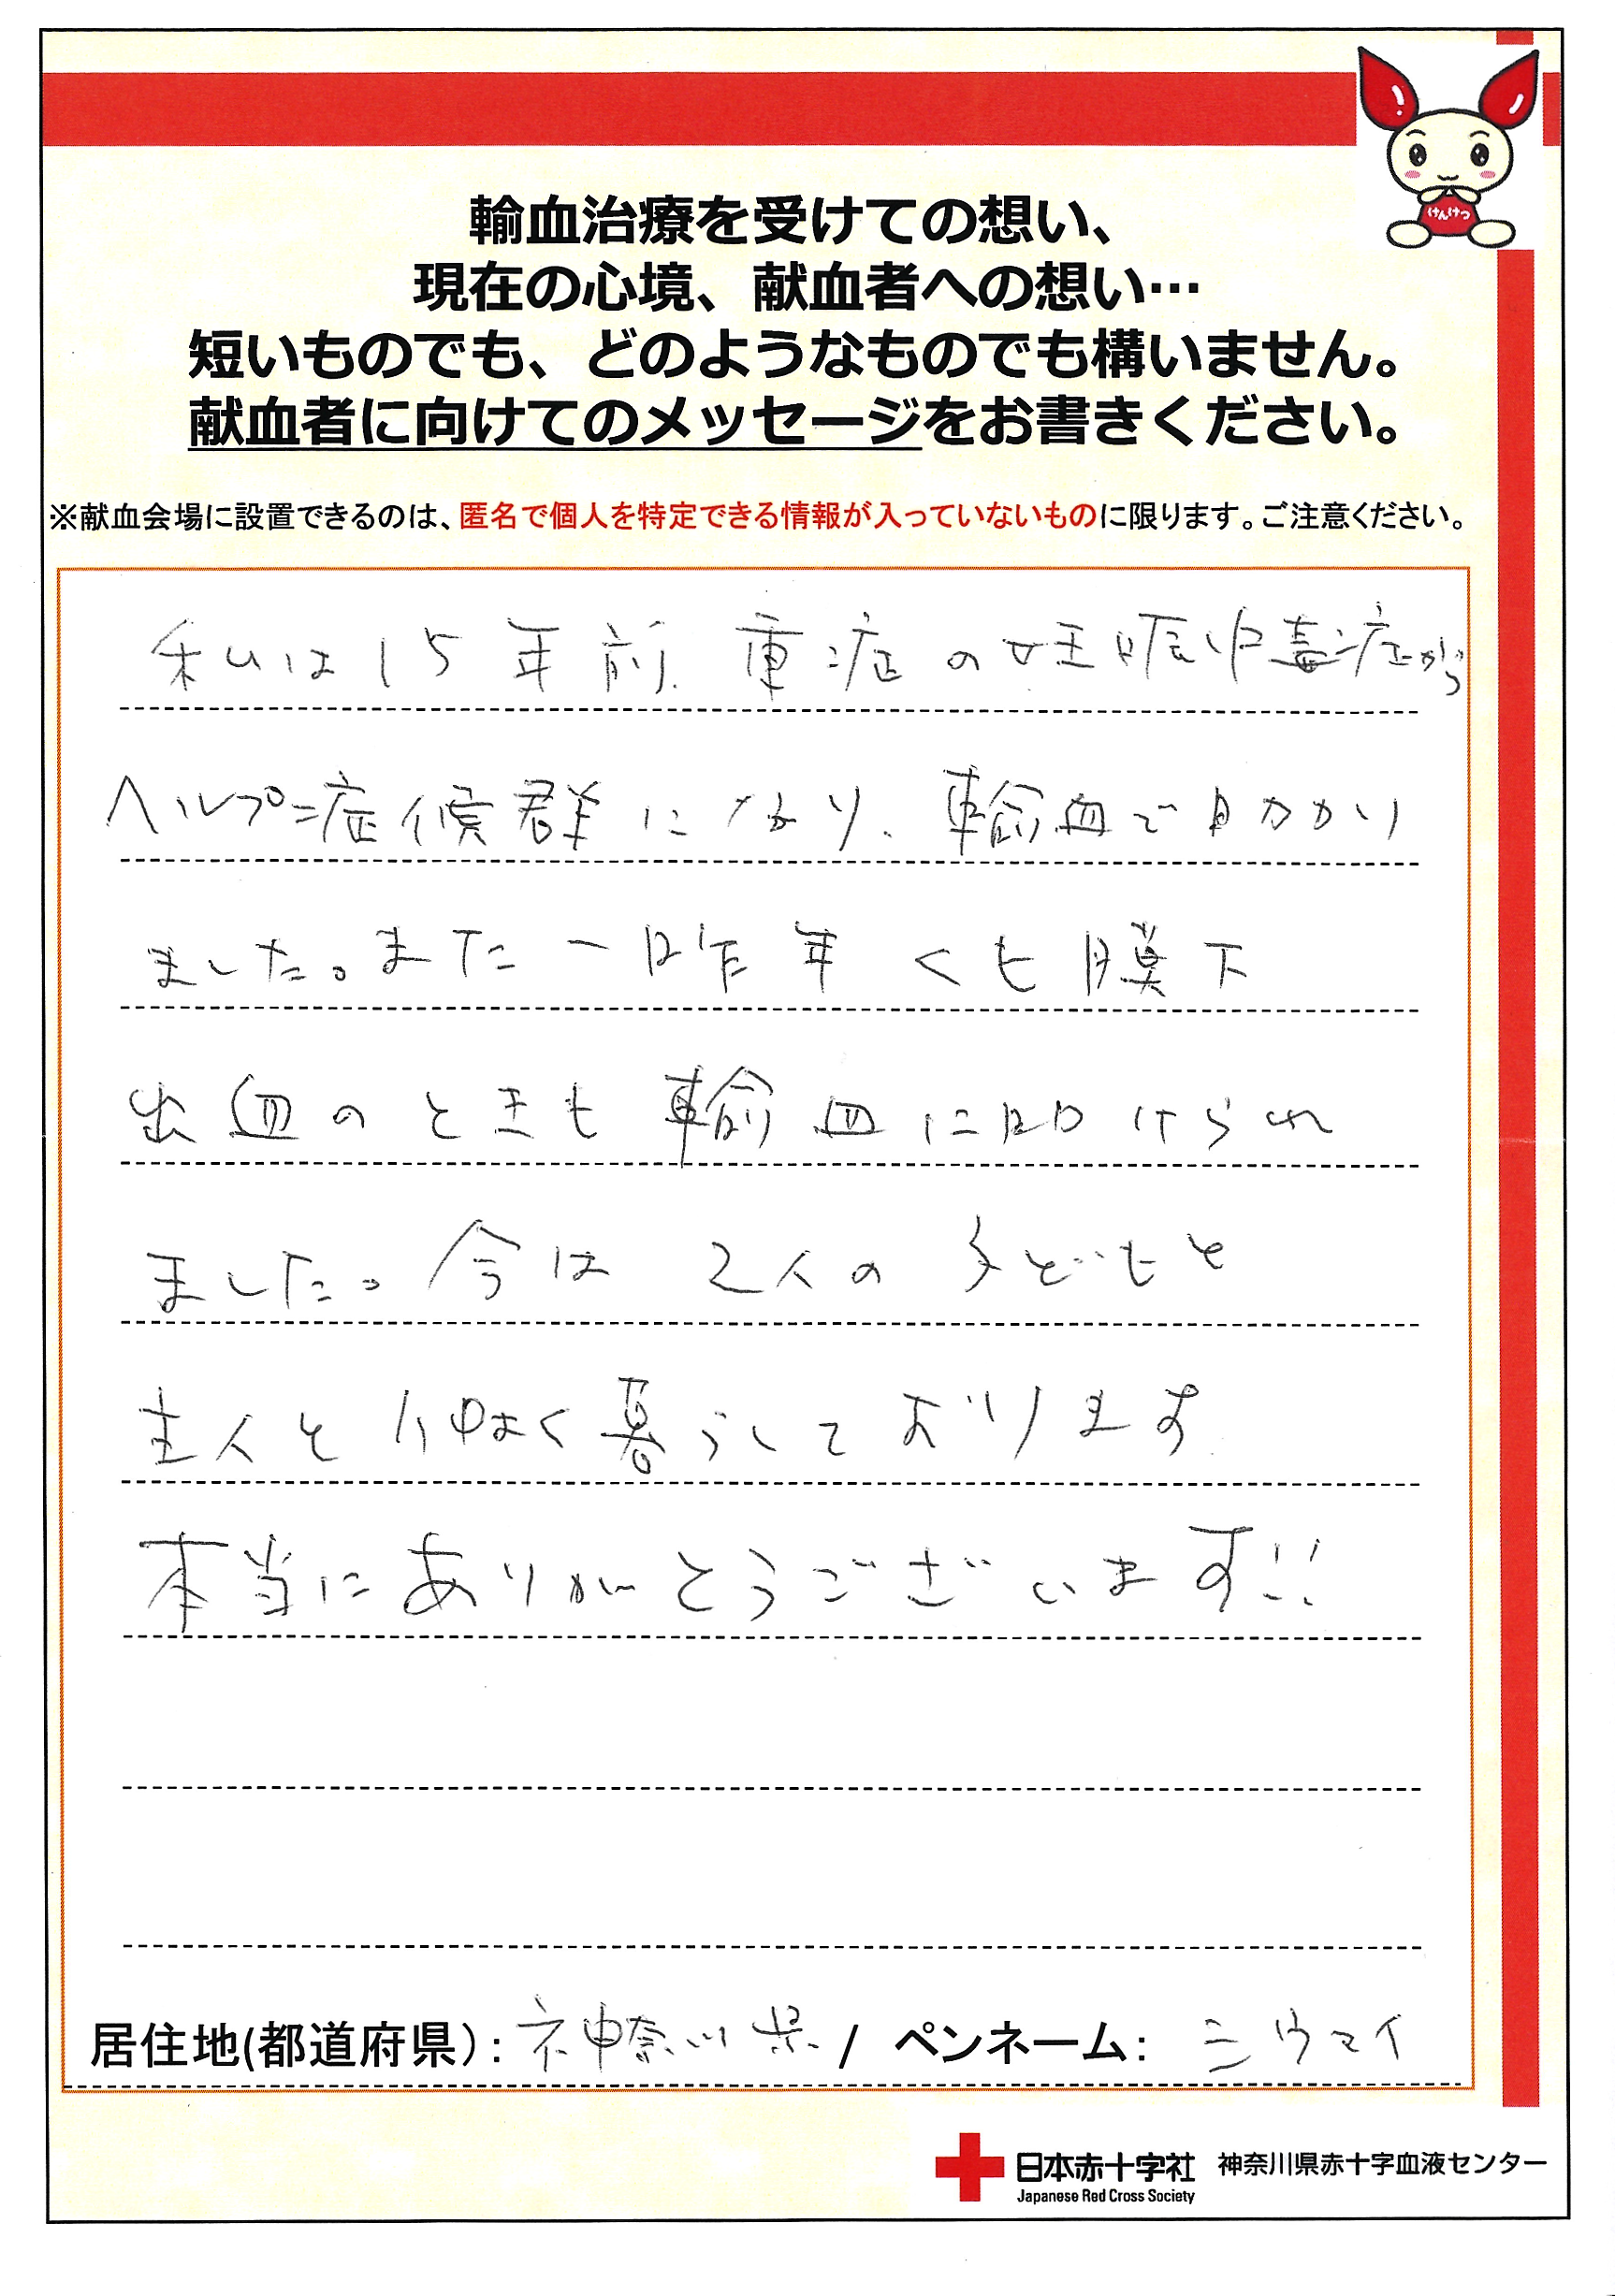 けんけつ
輸血治療を受けての想い、
現在の心境、献血者への想い…
短いものでも、どのようなものでも構いません。
献血者に向けてのメッセージをお書きください。
※献血会場に設置できるのは、匿名で個人を特定できる情報が入っていないものに限ります。ご注意ください。
私は15年前、重症の妊娠中毒症から
ヘルプ症候群になり、輸血で助かり
ました。また一昨年くも膜下
出血のときも輸血に助けられ
ました。今は2人の子どもと
主人と仲よく暮らしております。
本当にありがとうございます!!
居住地(都道府県):神奈川県 / ペンネーム: シウマイ
日本赤十字社 神奈川県赤十字血液センター
Japanese Red Cross Society